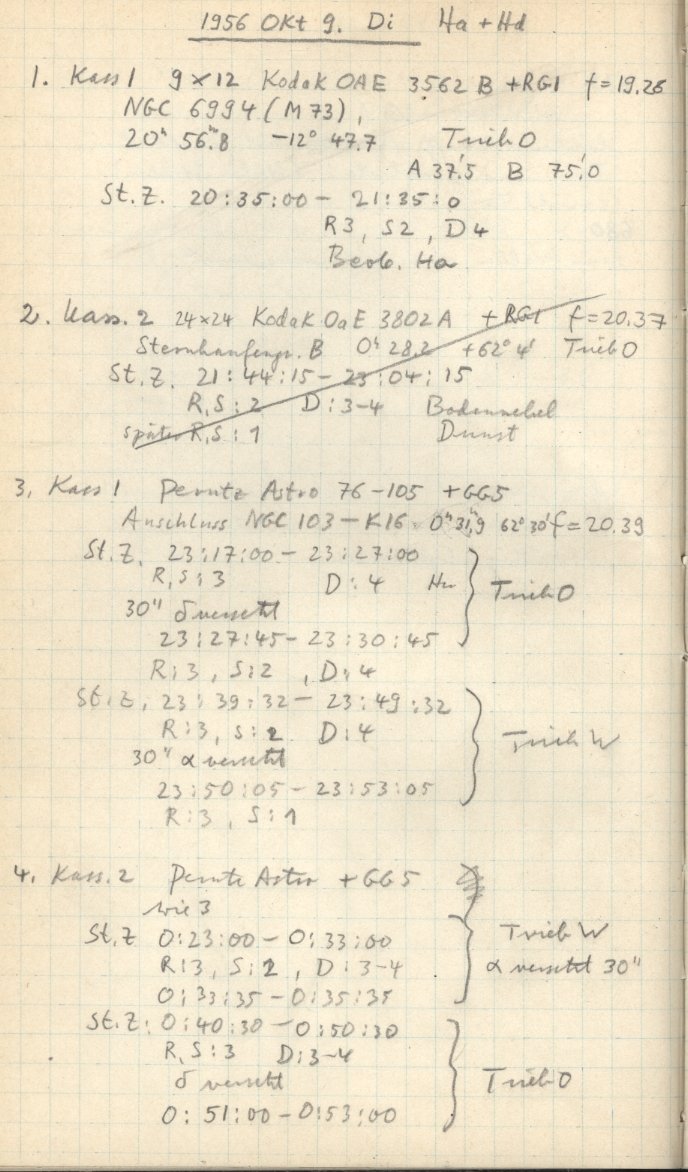 1956 Okt 9. Di Ha + Hd
1. Kass 1 9 x 12 Kodak OAE 3562 B + RG1 f = 19.26
NGC 6994 (M 73),
20ʰ 56ᵐ.8 -12° 47.7 Trieb O
A 37'.5 B 75'.0
St. Z. 20:35:00 - 21:35:0
R3, S2, D4
Beob. Ha
2. Kass. 2 24x24 Kodak OaE 3802 A + RG1 f = 20.37
Sternhaufengr. B 0ʰ 28.2 +62° 4' Trieb O
St. Z. 21:44:15 - 23:04:15
R, S: 2 D: 3-4 Bodennebel
später R, S: 1 Dunst
3. Kass 1 Perutz Astro 76-105 + GG5
Anschluss NGC 103 - K16 0ʰ 31ᵐ,9 62° 30' f = 20.39
St. Z. 23:17:00 - 23:27:00
R, S: 3 D: 4 Trieb O
30" δ versetzt
23:27:45 - 23:30:45
R: 3, S: 2, D: 4
St. Z. 23:39:32 - 23:49:32
R: 3, S: 2 D: 4 Trieb W
30" α versetzt
23:50:05 - 23:53:05
R: 3, S: 1
4. Kass. 2 Perutz Astro + GG5
wie 3
St. Z 0:23:00 - 0:33:00 Trieb W
R: 3, S: 2, D: 3-4 α versetzt 30"
0:33:35 - 0:35:35
St. Z: 0:40:30 - 0:50:30
R, S: 3 D: 3-4
δ versetzt Trieb O
0:51:00 - 0:53:00